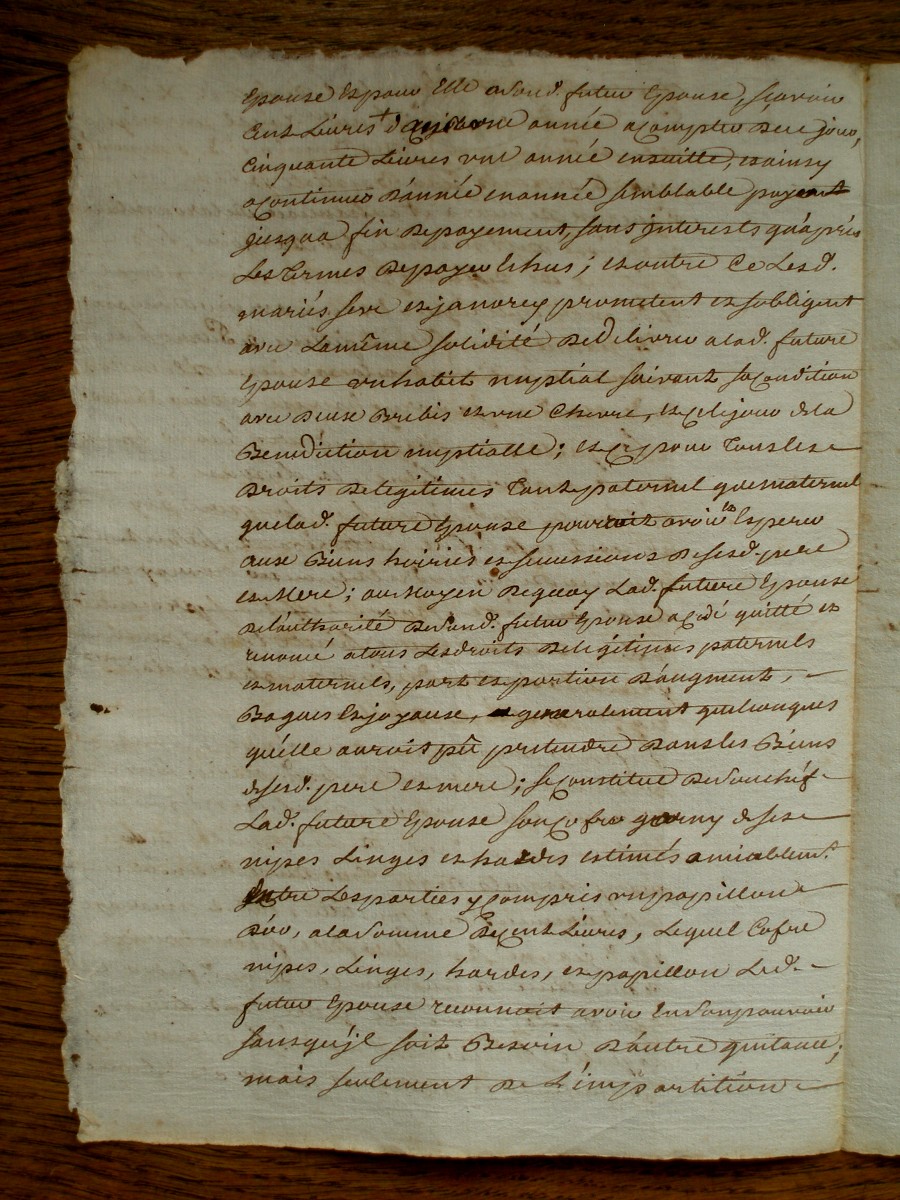 Epouse Et pour Elle a Sond. futur Epouse, scavoir
Cent Livres d'aujourd'huy en une année a Compter De ce jour,
Cinquante Livres une année ensuitte, et ainsy
a Continuer D'année en année semblable payement
jusqua fin De payement, sans jnterests qu'aprés
Les Termes De payer Echus; et outre Ce Lesd.
mariés, serr et janorey promettent et sobligent
avec La même solidité De delivrer a lad. future
Epouse un habit nuptial suivant sa Condition
avec Deux Brebis et une Chevre, et Ce le jour de la
Benediction nuptialle; et Ce pour Tous les
Droits De legitimes Tant paternel que maternel
que lad. future Epouse pourroit avoir et Esperer
aux Biens hoiries et successions De sesd. pere
et Mere; au Moyen De quoy Lad. future Epouse
De l'authorité De Sond. futur Epouse a Cedé quitté et
renoncé a tous Les droits De legitimes paternels
et maternels, part et portion D'augment,
Bagues Et joyaux, et generalement quelconques
qu'elle auroit pû pretendre Dans les Biens
de sesd. pere et mere; se Constitue De Son chéf
Lad. future Epouse son Cofre garny de ses
nipes Linges et hardes estimés amiablemt.
Entre Les parties y Compris un papillon
D'or, a la Somme De Cent Livres, Lequel Cofre
nipes, Linges, hardes, et papillon Led.
futur Epouse reconnoit avoir En Son pouvoir
sans qu'jl soit Besoin D'autre quitance;
mais seulement De L'impartition